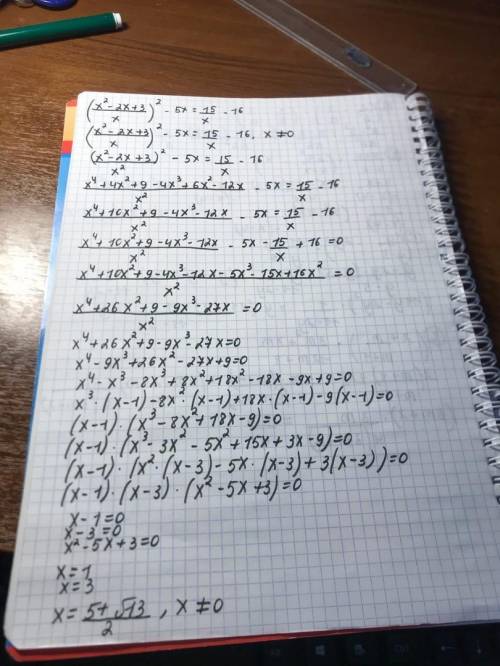 (x²-2x+3/x)² - 5x = 15/x - 16
(x²-2x+3/x)² - 5x = 15/x - 16, x ≠ 0
(x²-2x+3)²/x² - 5x = 15/x - 16
x⁴+4x²+9-4x³+6x²-12x/x² - 5x = 15/x - 16
x⁴+10x²+9-4x³-12x/x² - 5x = 15/x - 16
x⁴+10x²+9-4x³-12x/x² - 5x - 15/x + 16 = 0
x⁴+10x²+9-4x³-12x-5x³-15x+16x²/x² = 0
x⁴+26x²+9-9x³-27x/x² = 0
x⁴+26x²+9-9x³-27x=0
x⁴-9x³+26x²-27x+9=0
x⁴-x³-8x³+8x²+18x²-18x-9x+9=0
x³·(x-1)-8x²·(x-1)+18x·(x-1)-9(x-1)=0
(x-1)·(x³-8x²+18x-9)=0
(x-1)·(x³-3x²-5x²+15x+3x-9)=0
(x-1)·(x²·(x-3)-5x·(x-3)+3(x-3))=0
(x-1)·(x-3)·(x²-5x+3)=0
x-1=0
x-3=0
x²-5x+3=0
x=1
x=3
x=5+√13/2, x≠0